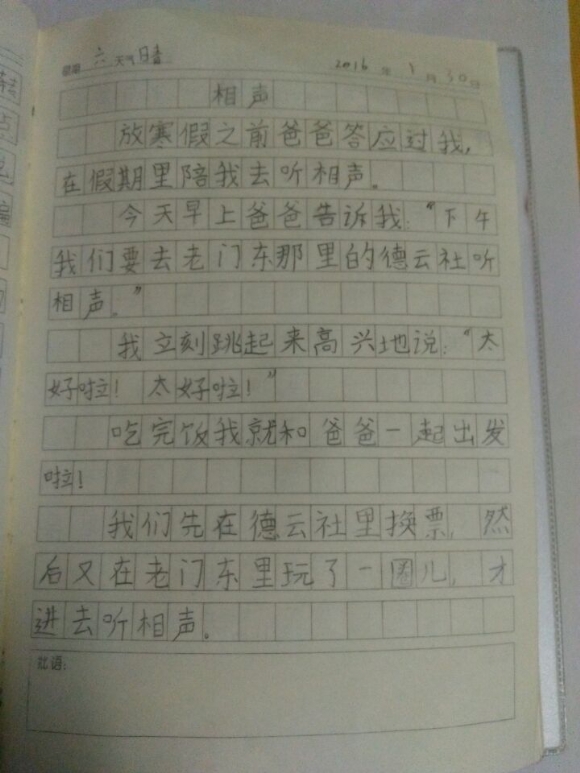 星期 六 天气 晴 2016 年 1 月 30 日
相声
放寒假之前爸爸答应过我,
在假期里陪我去听相声。
今天早上爸爸告诉我:“下午
我们要去老门东那里的德云社听
相声。”
我立刻跳起来高兴地说:“太
好啦!太好啦!”
吃完饭我就和爸爸一起出发
啦!
我们先在德云社里换票,然
后又在老门东里玩了一圈儿,才
进去听相声。
批语: